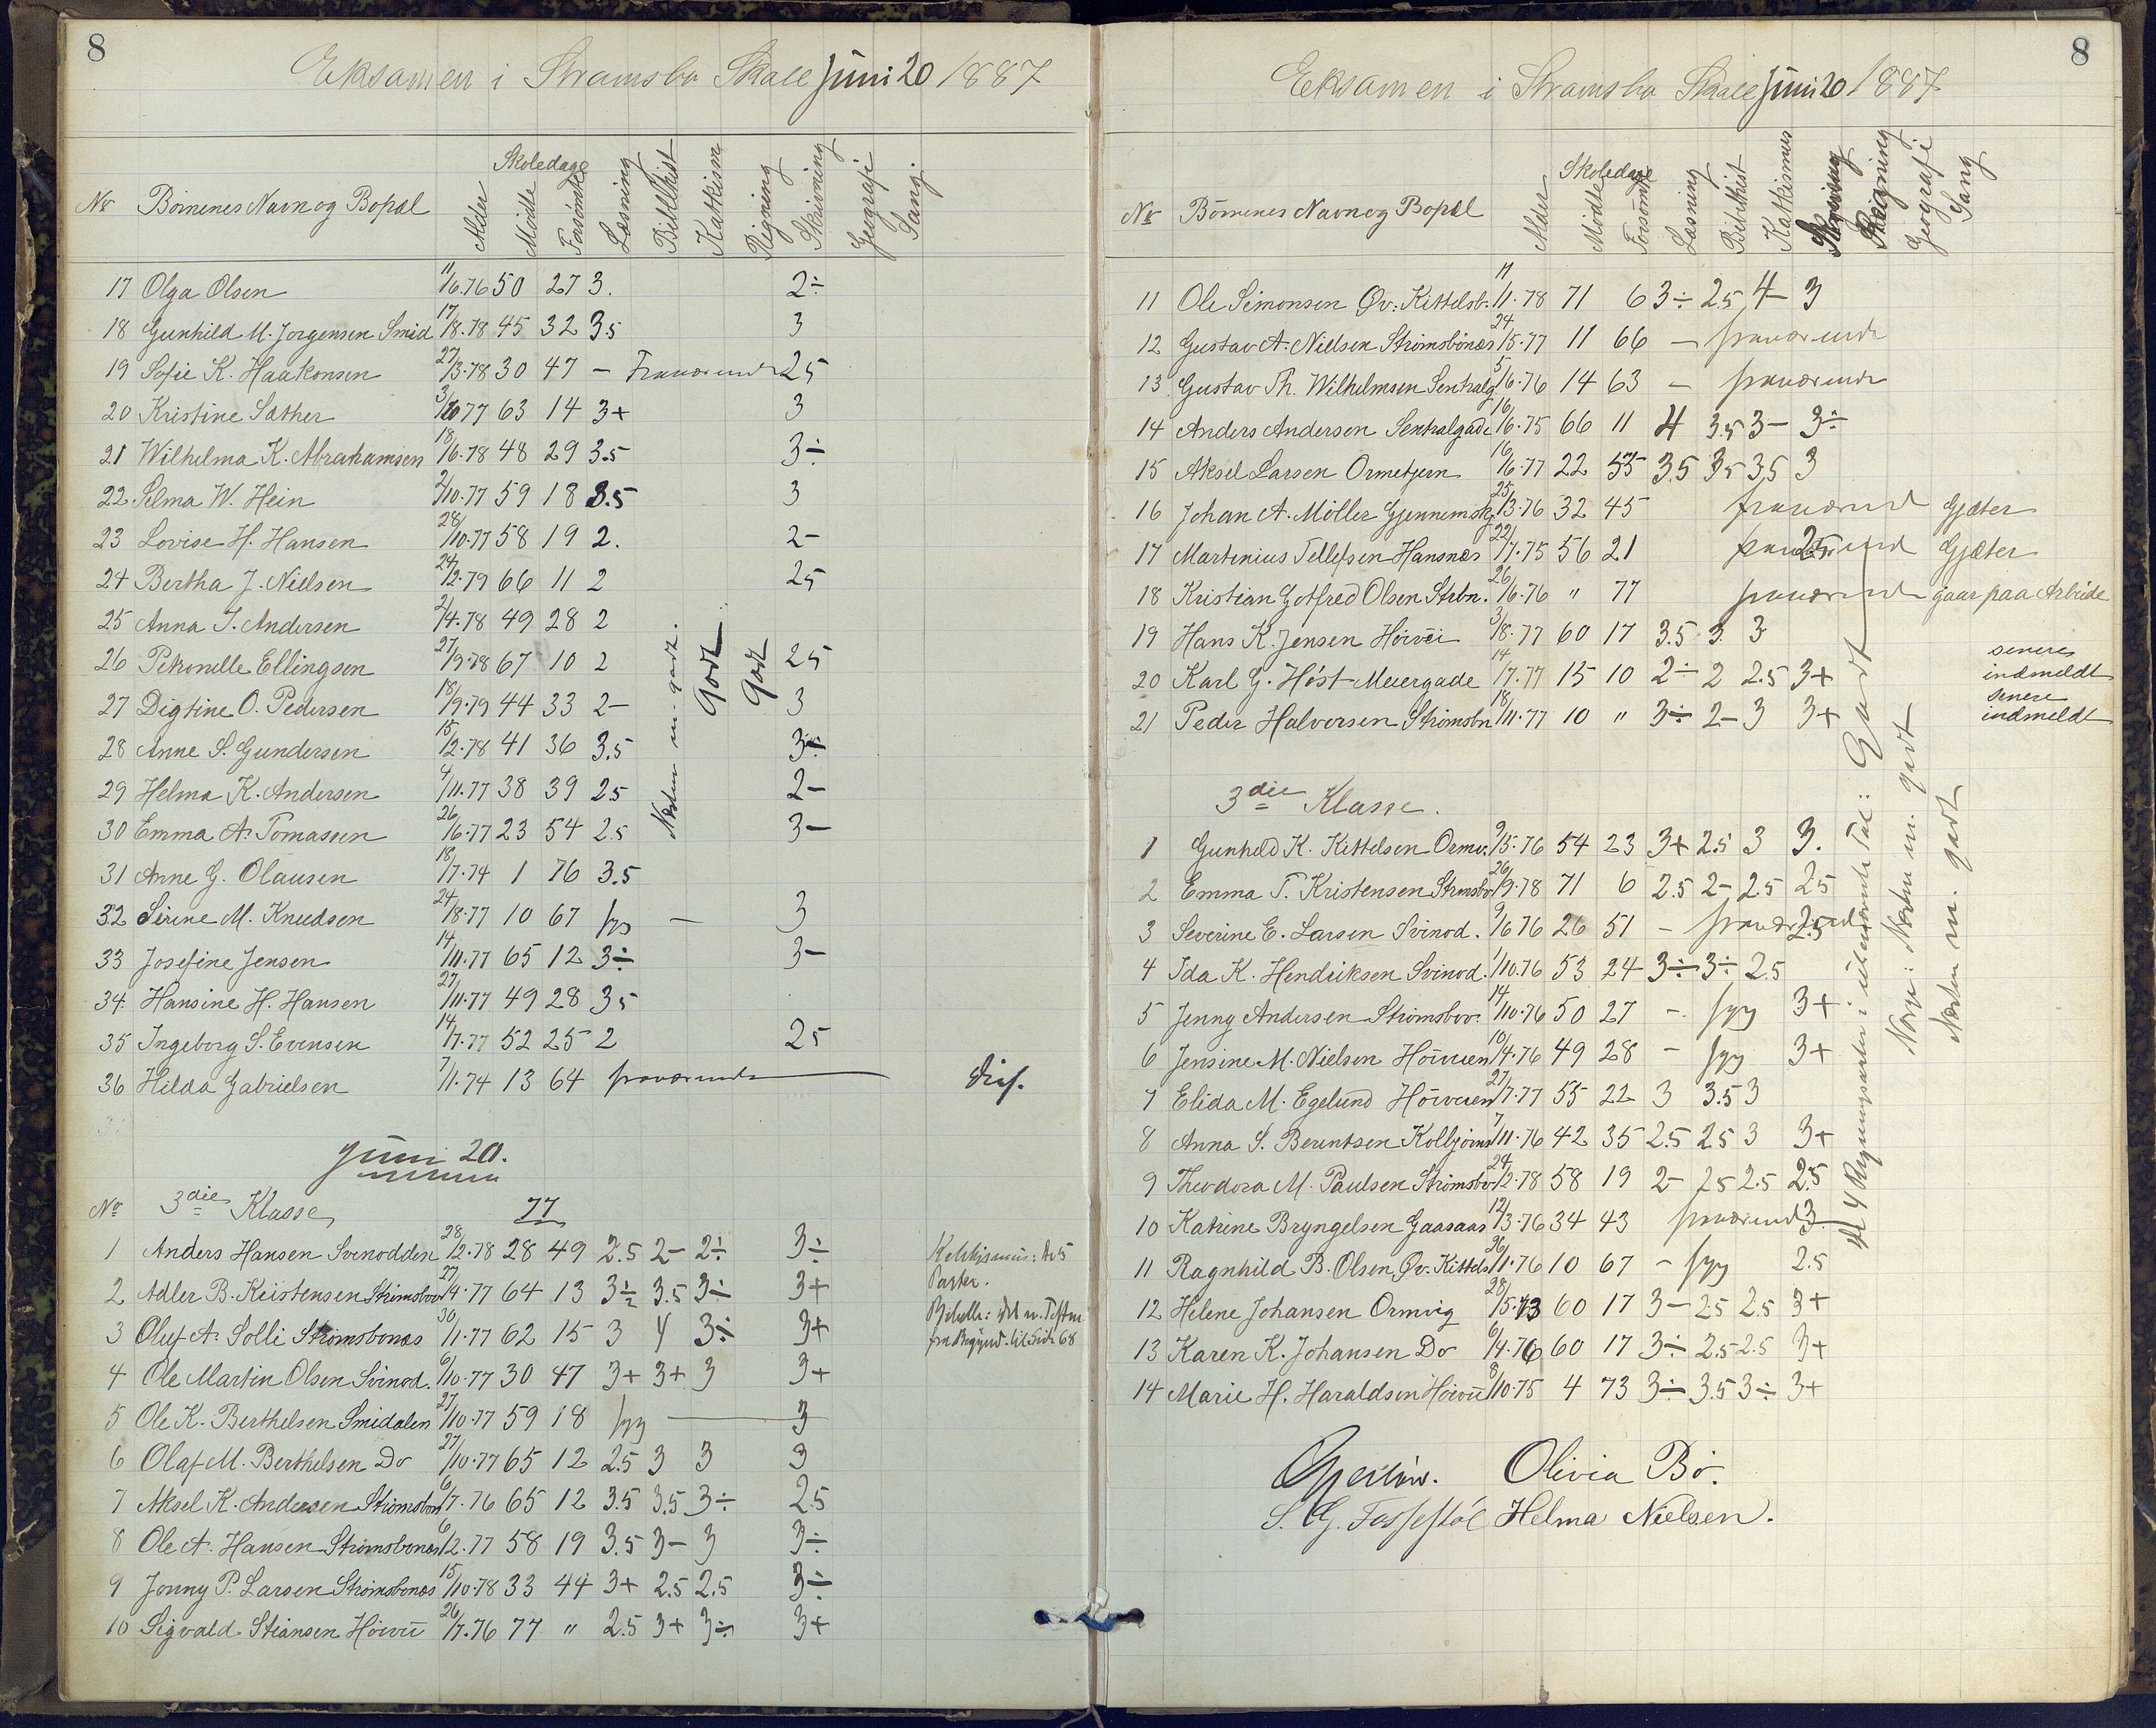 8
Eksamen i Strømsbo Skole Juni 20 1887
Skoledage
No Börnenes Navn og Bopæl Alder Mödte Forsömte Læsning Bibelhist Katkism Regning Skrivning Geografi Sang.
17 Olga Olsen 11/6.76 50 27 3. 2÷
18 Gunhild M. Jorgensen Smid 17/8.78 45 32 3.5 3
19 Sofie K. Haakonsen 27/3.78 30 47 — Fraværende 25
20 Kristine Sæther 3/10 77 63 14 3+ 3
21 Wilhelma K. Abrahamsen 18/6.78 48 29 3.5 3÷
22 Selma W. Hein 2/10.77 59 18 3.5 3
23 Lovise H. Hansen 28/10.77 58 19 2. 2-
24 Bertha J. Nielsen 24/2.79 66 11 2 25
25 Anna J. Andersen 2/4.78 49 28 2
26 Petronelle Ellingsen 27/9.78 67 10 2 25
27 Digtine O. Pedersen 18/9.79 44 33 2- 3
28 Anne S. Gundersen 15/2.78 41 36 3.5 3÷
29 Helma K. Andersen 4/11.77 38 39 25 2-
30 Emma A. Tomassen 26/6.77 23 54 2.5 3-
31 Anne G. Olausen 18/7.74 1 76 3.5
32 Sirine M. Knudsen 24/8.77 10 67 syg — 3
33 Josefine Jensen 14/11.77 65 12 3÷ 3-
34 Hansine H. Hansen 27/11.77 49 28 35
35 Ingeborg S. Evensen 14/7.77 52 25 2 25
36 Hilda Gabrielsen 7/11.74 13 64 fraværende
Næsten m. godt.
Godt
Godt
Juni 20.
No 3die Klasse 77
1 Anders Hansen Svinodden 28/2.78 28 49 2.5 2- 2÷ 3÷
2 Adler B. Kristensen Strömsbo 27/4.77 64 13 3÷ 3.5 3÷ 3+
3 Oluf A. Solli Strömsbonæs 30/11.77 62 15 3 4 3÷ 3+
4 Ole Martin Olsen Svinod. 6/10.77 30 47 3+ 3+ 3 3+
5 Ole K. Berthelsen Smidalen 27/10.77 59 18 syg — 3
6 Olaf M. Berthelsen Do 27/10.77 65 12 2.5 3 3 3
7 Aksel K. Andersen Strömsbon 6/7.76 65 12 3.5 3.5 3÷ 2.5
8 Ole A. Hansen Strömsbonæs 6/2.77 58 19 3.5 3- 3 3÷
9 Jonny P. Larsen Strömsbonæs 15/10.78 33 44 3+ 2.5 2.5 3÷
10 Sigvald Stiansen Höivei 26/7.76 77 " 2.5 3+ 3÷ 3+
Katkismus: de 5
Parter.
8
Eksamen i Strømsbo Skole Juni 20 1887
Skoledage
No Börnenes Navn og Bopæl Alder Mödte Forsömte Læsning Bibelhist Katkismus Skrivning Regning Geografi Sang
11 Ole Simonsen Øv: Kittelsb. 11/11.78 71 6 3÷ 2.5 4- 3
12 Gustav A. Nielsen Strömsbönæs 24/5.77 11 66 — fraværende
13 Gustav Th. Wilhelmsen Sentralg. 5/6.76 14 63 — fraværende
14 Anders Andersen Sentralgade 16/6.75 66 11 4 3.5 3- 3÷
15 Aksel Larsen Ormetjern 16/6.77 22 55 3.5 3.5 3.5 3
16 Johan A. Möller Gjennemskj. 25/3.76 32 45 fraværend Gjæter
17 Martinius Tellefsen Hansnæs 22/7.75 56 21 fraværend 25 Gjæter
18 Kristian Gotfred Olsen Strbn. 26/6.76 " 77 fraværende gaar paa Arbeide
19 Hans K. Jensen Höivei 3/8.77 60 17 3.5 3 3
20 Karl G. Höst Meiergade 14/7.77 15 10 2÷ 2 2.5 3+ senere indmeldt
21 Peder Halvorsen Strömsbn 18/11.77 10 " 3÷ 2- 3 3+ senere indmeldt
3die Klasse.
1 Gunhild K. Kittelsen Ormv. 9/5.76 54 23 3+ 2.5 3 3.
2 Emma T. Kristensen Strmsbo 26/9.78 71 6 2.5 2- 2.5 2.5
3 Severine E. Larsen Svinod. 9/6 76 26 51 — fraværend 2.5
4 Ida K. Hendriksen Svinod. 1/10.76 53 24 3÷ 3÷ 2.5
5 Jenny Andersen Strömsbov. 14/10.76 50 27 -. syg 3+
6 Jensine M. Nielsen Höiveien 10/4.76 49 28 - syg 3+
7 Elida M. Egelund Höiveien 27/7.77 55 22 3 3.5 3
8 Anna S. Berentsen Kolbjörns 7/11.76 42 35 2.5 2.5 3 3+
9 Theodora M. Paulsen Strömsbo 24/2.78 58 19 2- 25 2.5 2.5
10 Katrine Bryngelsen Gaasaas 12/3.76 34 43 fraværend 3
11 Ragnhild B. Olsen Øv. Kittels 26/11.76 10 67 - syg 2.5
12 Helene Johansen Ormvig 28/5.73 60 17 3- 25 2.5 3+
13 Karen K. Johansen Do 6/4.76 60 17 3÷ 2.5 2.5 3+
14 Marie H. Haraldsen Höivei 8/10.75 4 73 3÷ 3.5 3÷ 3+
de 4 Regningsarter i ubenævnte Tal: Godt
Norge: Næsten m. godt
Næsten m. godt
Olivia Bö.
S. G. Fosfestöl Helma Nielsen.